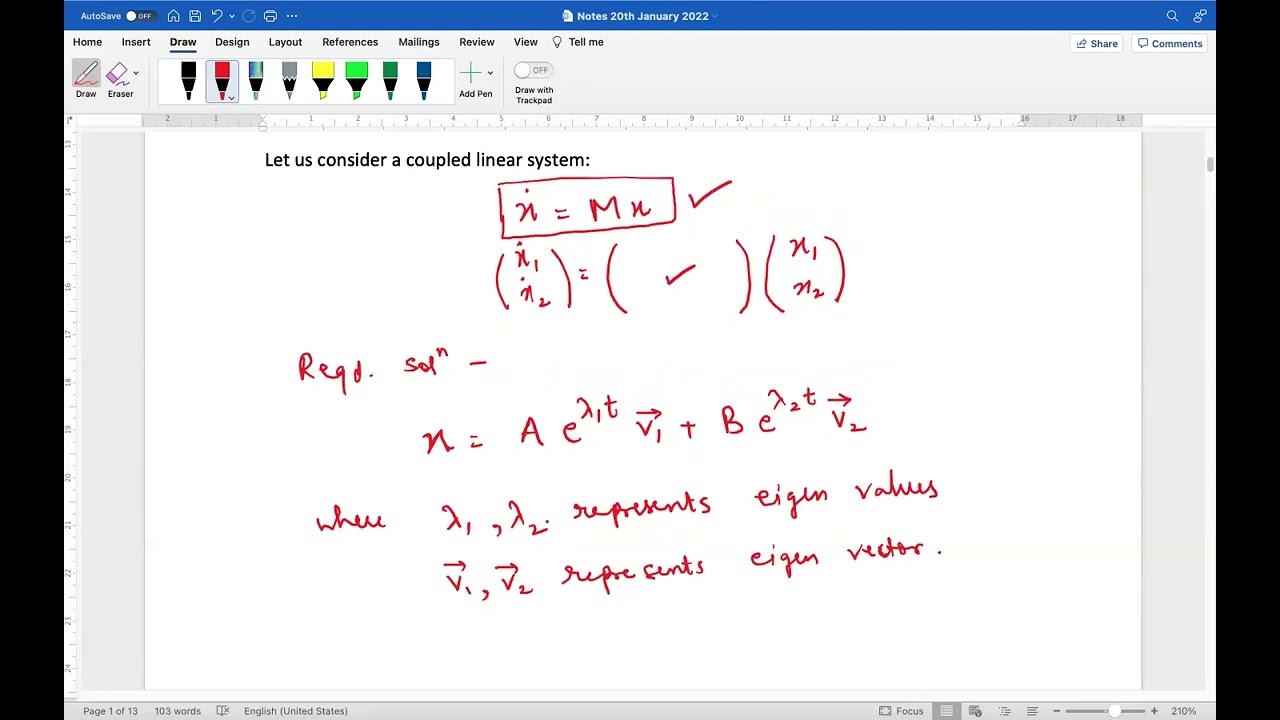 AutoSave OFF Notes 20th January 2022
Home Insert Draw Design Layout References Mailings Review View Tell me Share Comments
Draw Eraser Add Pen OFF Draw with Trackpad
2 1 1 2 3 4 5 6 7 8 9 10 11 12 13 14 15 16 17 18
13
14
15
16
17
18
19
20
21
22
23
24
Let us consider a coupled linear system:
ẋ = M x ✓
(ẋ₁ ẋ₂) = ( ✓ ) (x₁ x₂)
Reqd. solⁿ –
x = A e^{λ₁t} v⃗₁ + B e^{λ₂t} v⃗₂
where λ₁, λ₂. represents eigen values
v⃗₁, v⃗₂ represents eigen vector.
Page 1 of 13 103 words English (United States) Focus 210%